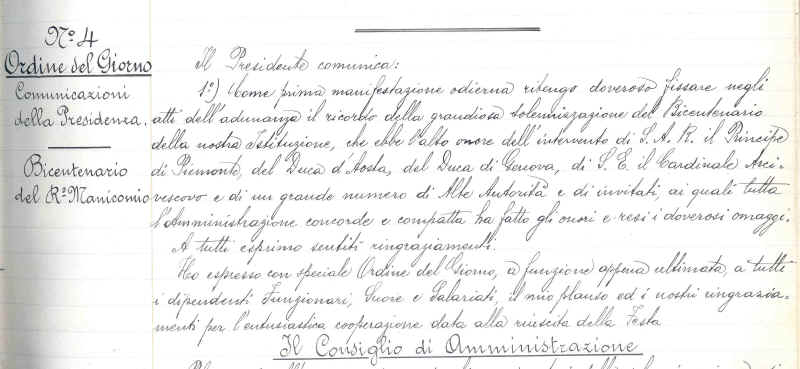 Nº 4
Ordine del Giorno
Comunicazioni
della Presidenza.
Bicentenario
del Rº Manicomio
Il Presidente comunica:
1º) Come prima manifestazione odierna ritengo doveroso fissare negli
atti dell'adunanza il ricordo della grandiosa solennizzazione del Bicentenario
della nostra Istituzione, che ebbe l'alto onore dell'intervento di S. A. R. il Principe
di Piemonte, del Duca d'Aosta, del Duca di Genova, di S. E. il Cardinale Arci-
vescovo e di un grande numero di Alte Autorità e di invitati, ai quali tutta
l'Amministrazione concorde e compatta ha fatto gli onori e resi i doverosi omaggi.
A tutti esprimo sentiti ringraziamenti.
Ho espresso con speciale Ordine del Giorno, a funzione appena ultimata, a tutti
i dipendenti Funzionari, Suore e Salariati, il mio plauso ed i nostri ringrazia-
menti per l'entusiastica cooperazione data alla riuscita della Festa
Il Consiglio di Amministrazione